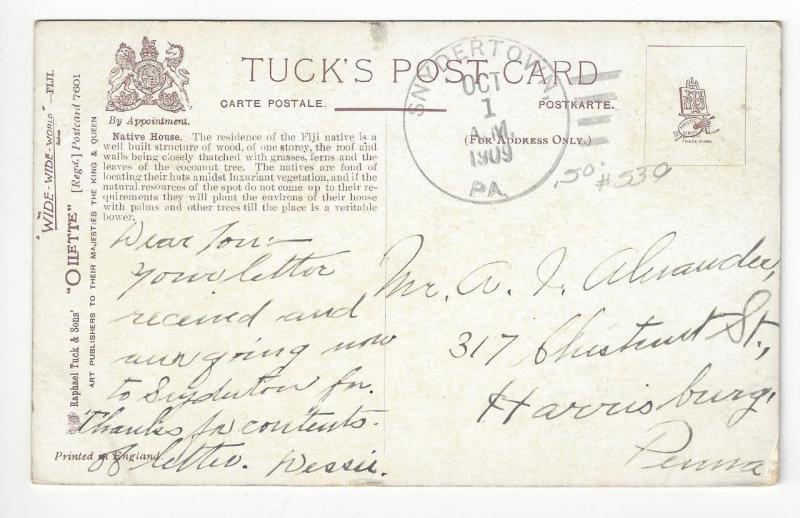 TUCK'S POST CARD
CARTE POSTALE.
POSTKARTE.
(FOR ADDRESS ONLY.)
By Appointment.
Native House. The residence of the Fiji native is a
well built structure of wood, of one storey, the roof and
walls being closely thatched with grasses, ferns and the
leaves of the cocoanut tree. The natives are fond of
locating their huts amidst luxuriant vegetation, and if the
natural resources of the spot do not come up to their re-
quirements they will plant the environs of their house
with palms and other trees till the place is a veritable
bower.
"WIDE-WIDE-WORLD" —FIJI.
Series
Raphael Tuck & Sons' "OILETTE" [Regd.] Postcard 7601
ART PUBLISHERS TO THEIR MAJESTIES THE KING & QUEEN
SNYDERTOWN,
OCT
1
A.M.
1909
PA.
TRADE MARK
.50 #530
Dear
Your letter
received and
am going now
to Snydertown for.
Thanks for contents
of letter.
Mr. A. J. Alexander,
317 Chestnut St.,
Harrisburg,
Penna
Printed in England.